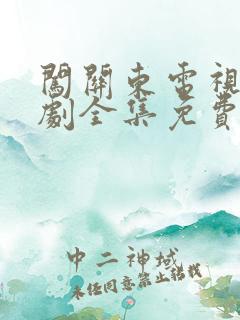 闖關東電視
劇全集免費
中二神域
未经同意禁止转载